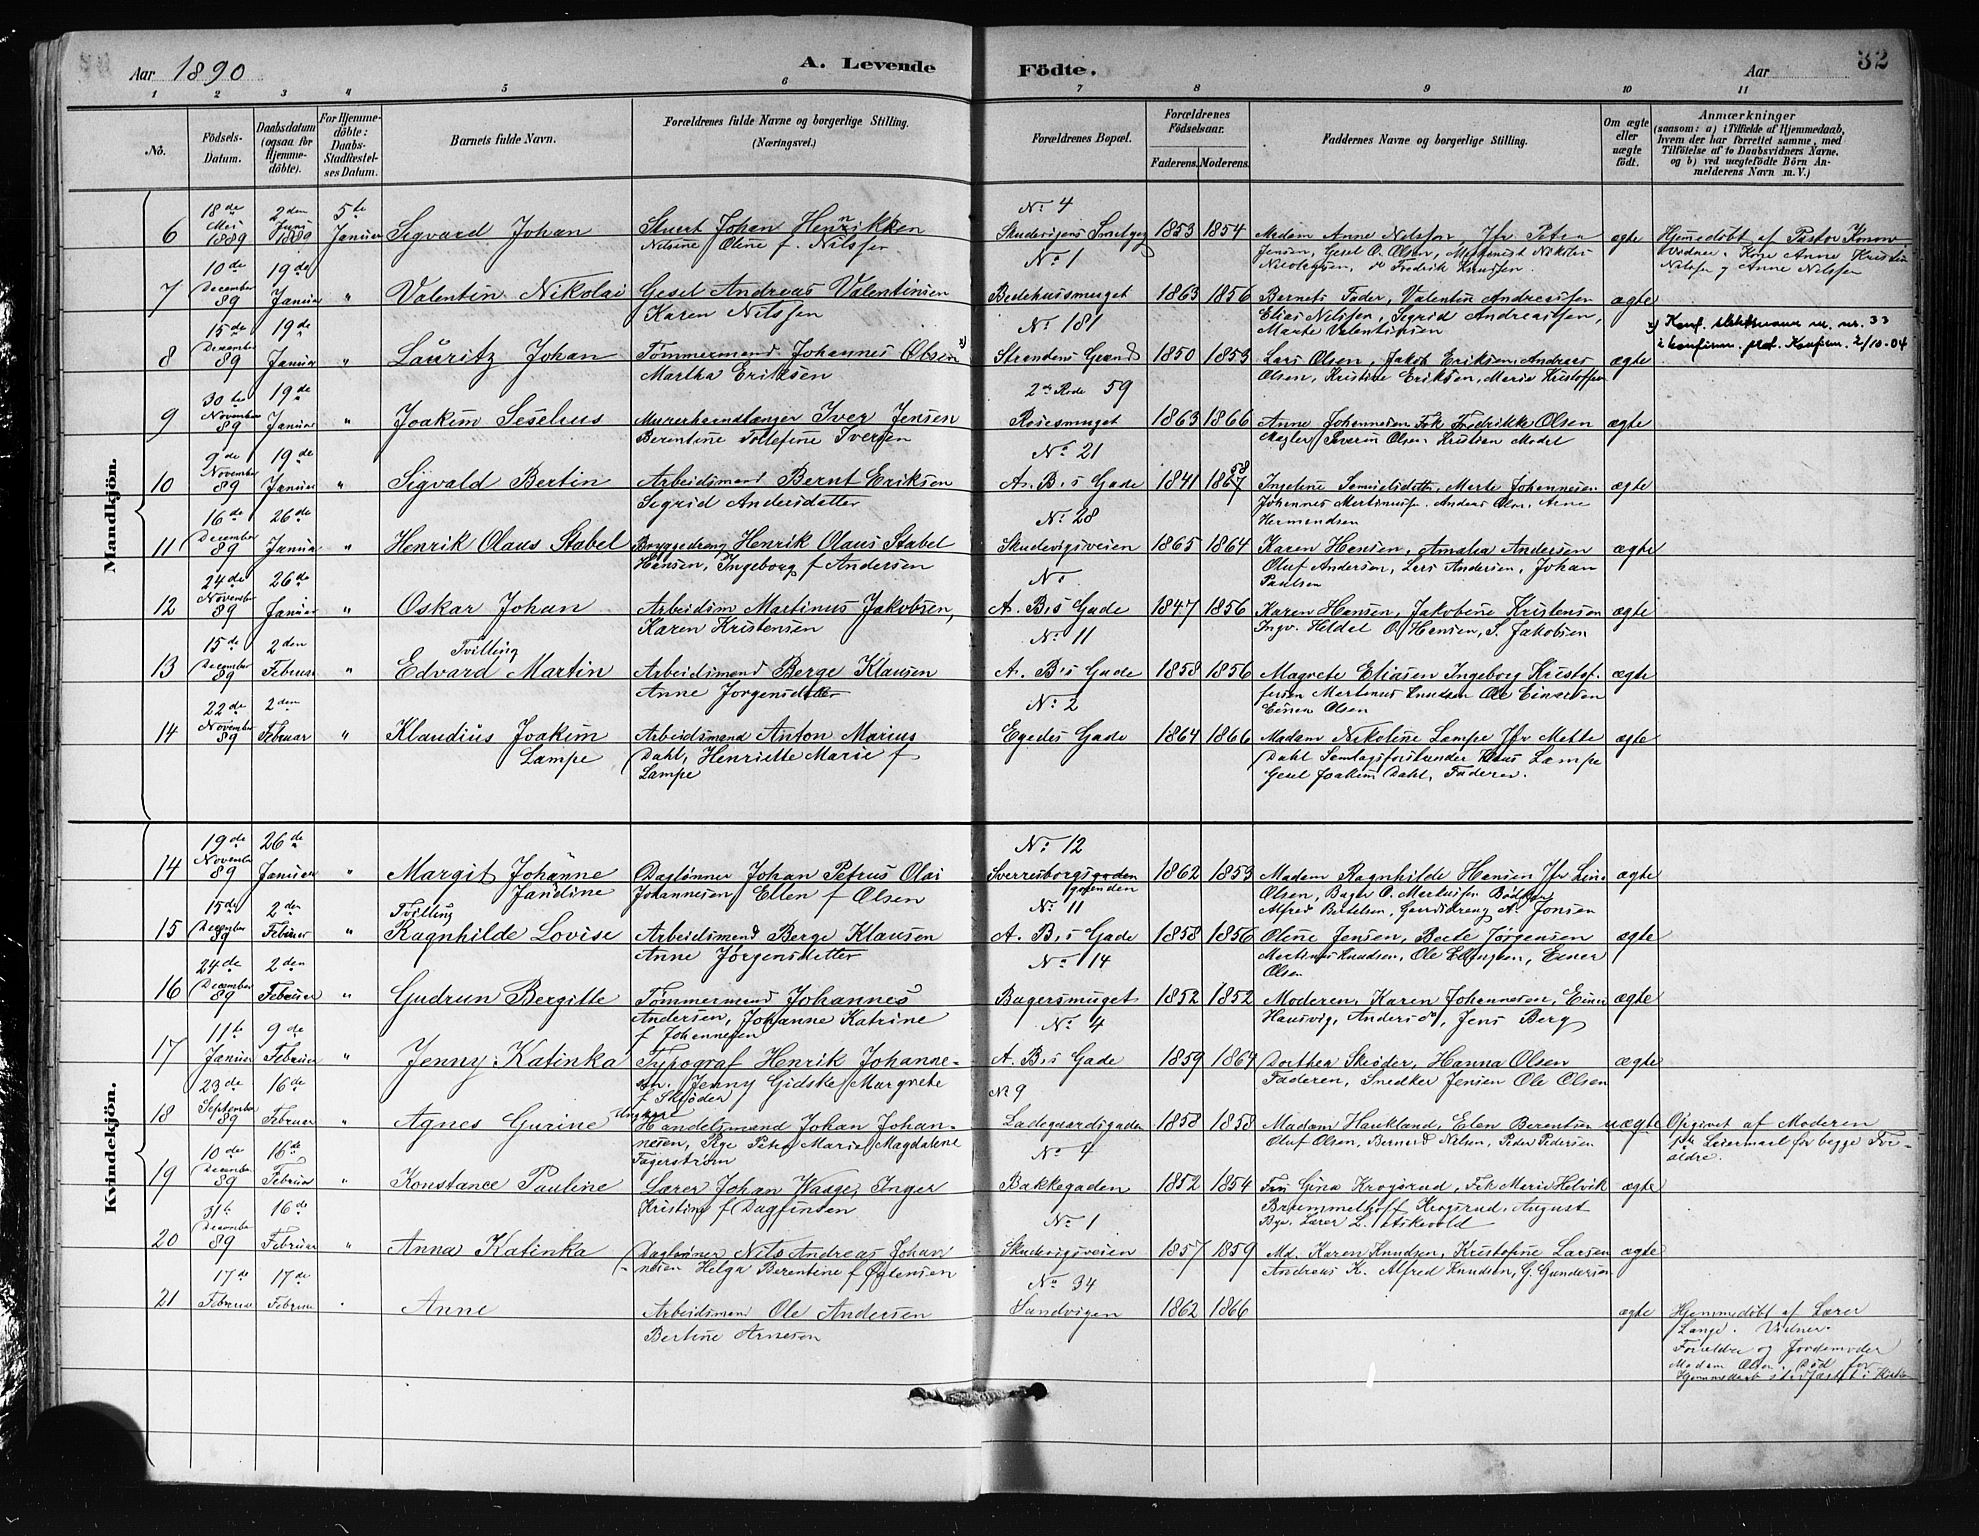 Aar 1890
A. Levende
Födte.
Aar
32
1 2 3 4 5 6 7 8 9 10 11
No.
Födsels-
Datum.
Daabsdatum
(ogsaa for
Hjemme-
döbte).
For Hjemme-
döbte:
Daabs-
Stadfæstel-
ses Datum.
Barnets fulde Navn.
Forældrenes fulde Navne og borgerlige Stilling.
(Næringsvei.)
Forældrenes Bopæl.
Forældrenes
Födselsaar.
Faderens. Moderens.
Faddernes Navne og borgerlige Stilling.
Om ægte
eller
uægte
født.
Anmærkninger
(saasom: a) i Tilfælde af Hjemmedaab,
hvem der har forrettet samme, med
Tilföielse af to Daabsvidners Navne.
og b) ved uægtefödte Börn An-
melderens Navn m. V.)
Mandkjön.
6 18de Mai 1889 2den Juni 1889 5te Januar Sigvard Johan
Stuert Johan Henrikken
Nilsine Oline f. Nilssen
No 4
1853 1854 Madam Anne Nilssen Jfr Petra
Jensen, Gesel O. Olsen,
ægte Hjemedöbt af Pastor Konow.
Anne Nilssen
7 10de December 89 19de Januar " Valentin Nikolai
Gesel Andreas Valentinsen
Karen Nilssen
No 1
Bedehussmuget 1863 1856 Barnets Fader, Valentin Andreassen
Elias Nilssen, Sigrid Andreassen,
Marte Valentinsen
ægte
8 15de December 89 19de Januar " Lauritz Johan
Tömmermand Johannes Olsen x)
Martha Eriksen
No 181
Strandens Grund 1850 1853 Lars Olsen, Jakob Eriksen, Andreas
Olsen, Kristine Eriksen, Marie Kristoffen
ægte
x) Konf. nr. 33
i konfirm. prot. Konfirm. 2/10-04
9 30te November 89 19de Januar " Joakim Seselius
Murerhaandlanger Iver Jensen
Berentine Tollefine Iversen
2de Rode 59
Rosesmuget 1863 1866 Anne Johannesen Frk Fredrikke Olsen
Severin Olsen Kristian Model
ægte
10 9de November 89 19de Januar " Sigvald Bertin
Arbeidsmand Bernt Eriksen
Sigrid Andersdatter
No 21
A. B,s Gade 1841 1858 Ingeline Merte Johannesen
Johannes Anders Olsen, Arne
Hermandsen
ægte
11 16de December 89 26de Januar " Henrik Olaus Stabel
Bryggedreng Henrik Olaus Stabel
Hansen, Ingeborg f Andersen
No 28
Skudevigsveien 1865 1864 Karen Hansen, Amalia Andersen
Oluf Andersen, Lars Andersen, Johan
Paulsen
ægte
12 24de November 89 26de Januar " Oskar Johan
Arbeidsm Martinus Jakobsen,
Karen Kristensen
No
A. B,s Gade 1847 1856 Karen Hansen, Jakobine Kristensen
Ingv. Heldal O. Hansen, S. Jakobsen
ægte
13 15de December 89 2den Februar " Tvilling
Edvard Martin
Arbeidsmand Berge Klausen
Anne Jorgensdatter
No 11
A. B,s Gade 1858 1856 Magrete Eliasen Ingeborg Kristof-
fersen Martinus Knudsen Ole Einarsen
Einar Olsen
ægte
14 22de November 89 2den Februar " Klaudius Joakim
Lampe
Arbeidsmand Anton Marius
Dahl, Henriette Marie f
Lampe
No 2
Egedes Gade 1864 1866 Madam Nikoline Lampe Jfr Mette
Dahl Samlagsforstander Klaus Lampe
Gesel Joakim Dahl, Faderen.
ægte
Kvindekjön.
14 19de November 89 26de Januar Margit Johanne
Jandine
Daglønner Johan Petrus Olai
Johannesen Ellen f Olsen
No 12
Sverresborgsgaden 1862 1853 Madam Ragnhilde Hansen Jfr Lina
Olsen, Bager O. Markussen Bödker
Alfred Bertelsen, Gaardsdreng A. Jonsen
ægte
15 15de December 89 2den Februar " Tvilling
Ragnhilde Lovise
Arbeidsmand Berge Klausen
Anne Jorgensdatter
No 11
A. B,s Gade 1858 1856 Oline Jensen, Berte Jørgensen
Martinus Knudsen, Ole Ellingsen, Einar
Olsen
ægte
16 24de December 89 2den Februar " Gudrun Bergitte
Tömmermand Johannes
Andersen, Johanne Katrine
f Johannesen
No 14
Bagersmuget 1852 1852 Moderen, Karen Johannesen, Einar
Hausvig, Anders do, Jens Berg
ægte
17 11te Januar 9de Februar " Jenny Katinka
Typograf Henrik Johanne-
sen. Jenny Gidske Margrete
f Skrøder
No 4
A. B,s Gade 1859 1864 Dorthea Skrøder, Hanna Olsen
Faderen, Snedker Jensen Ole Olsen
ægte
18 23de September 89 16de Februar " Agnes Gurine
Ungkarl
Handelsmand Johan Johan-
nesen, Pige Petra Marie Magdalene
Fagerström
No 9
Ladegaardsgaden 1858 1858 Madam Haukland, Elen Berentsen
Oluf Olsen, Bernard Nilsen, Peder Pedersen
uægte Opgivet af Moderen
1ste Leiermaal for begge For-
ældre.
19 10de December 89 16de Februar Konstance Pauline
Lærer Johan Waage, Inger
Kristine f Dagfinsen
No 4
Bakkegaden 1852 1854 Fru Gina Krogsrud, Frk Marie Helvik
Brummelhoff Krogsrud, August
Bye, Lærer L. Askevold
ægte
20 31te December 89 16de Februar " Anna Katinka
Daglønner Nils Andreas Johan
nesen Helga Berentine f Øglensen
No 1
Skudevigsveien 1857 1859 Md. Karen Knudsen, Kristofine Larsen
Andreas K. Alfred Knudsen, G. Gundersen
ægte
21 17de Februar 17de Februar Anne
Arbeidsmand Ole Andersen
Bertine Arnesen
No 34
Sandvigen 1862 1866
ægte Hjemmedöbt af Lærer
Lange. Vidner.
Forældre og Jordemoder
Madam Olsen. Død før